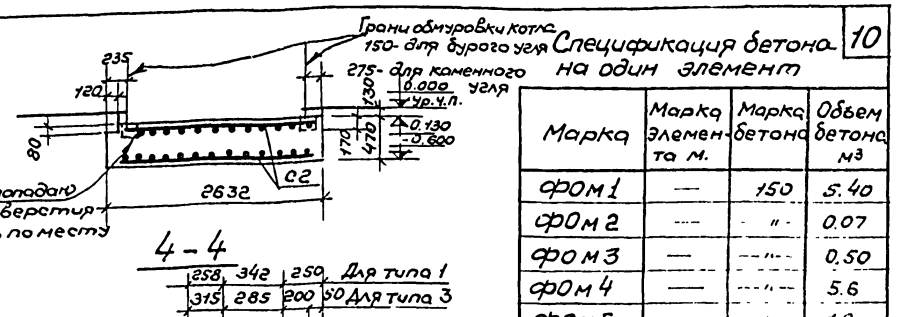 Грани обмуровки котла
150- для бурого угля
275- для каменного
угля
235
120
130
0.000
ур.ч.п.
0.130
-0.600
80
170
470
С2
2632
по месту
4-4
258 342 250 Для типа 1
315 285 200 50 Для типа 3
10
Спецификация бетона
на один элемент
Марка Марка элемен-та м. Марка бетона Объем бетона м3
ФОм1 — 150 5.40
ФОм2 — -"- 0.07
ФОм3 — -"- 0.50
ФОм4 — -"- 5.6